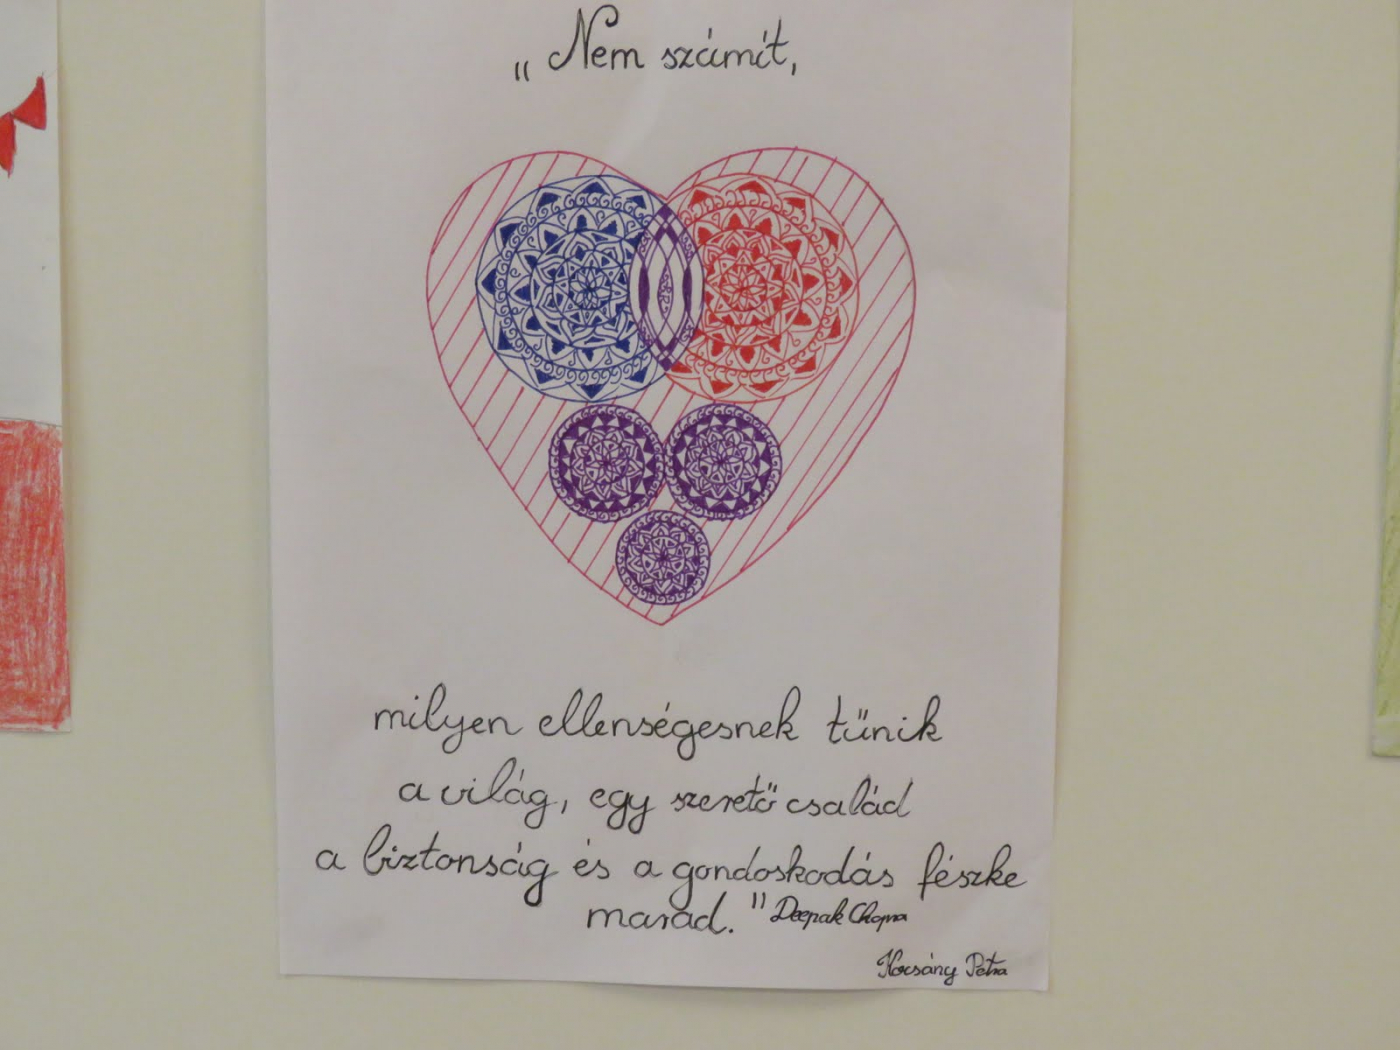 „Nem számít,
milyen ellenségesnek tűnik
a világ, egy szerető család
a biztonság és a gondoskodás fészke
marad." Deepak Chopra
Kocsány Petra